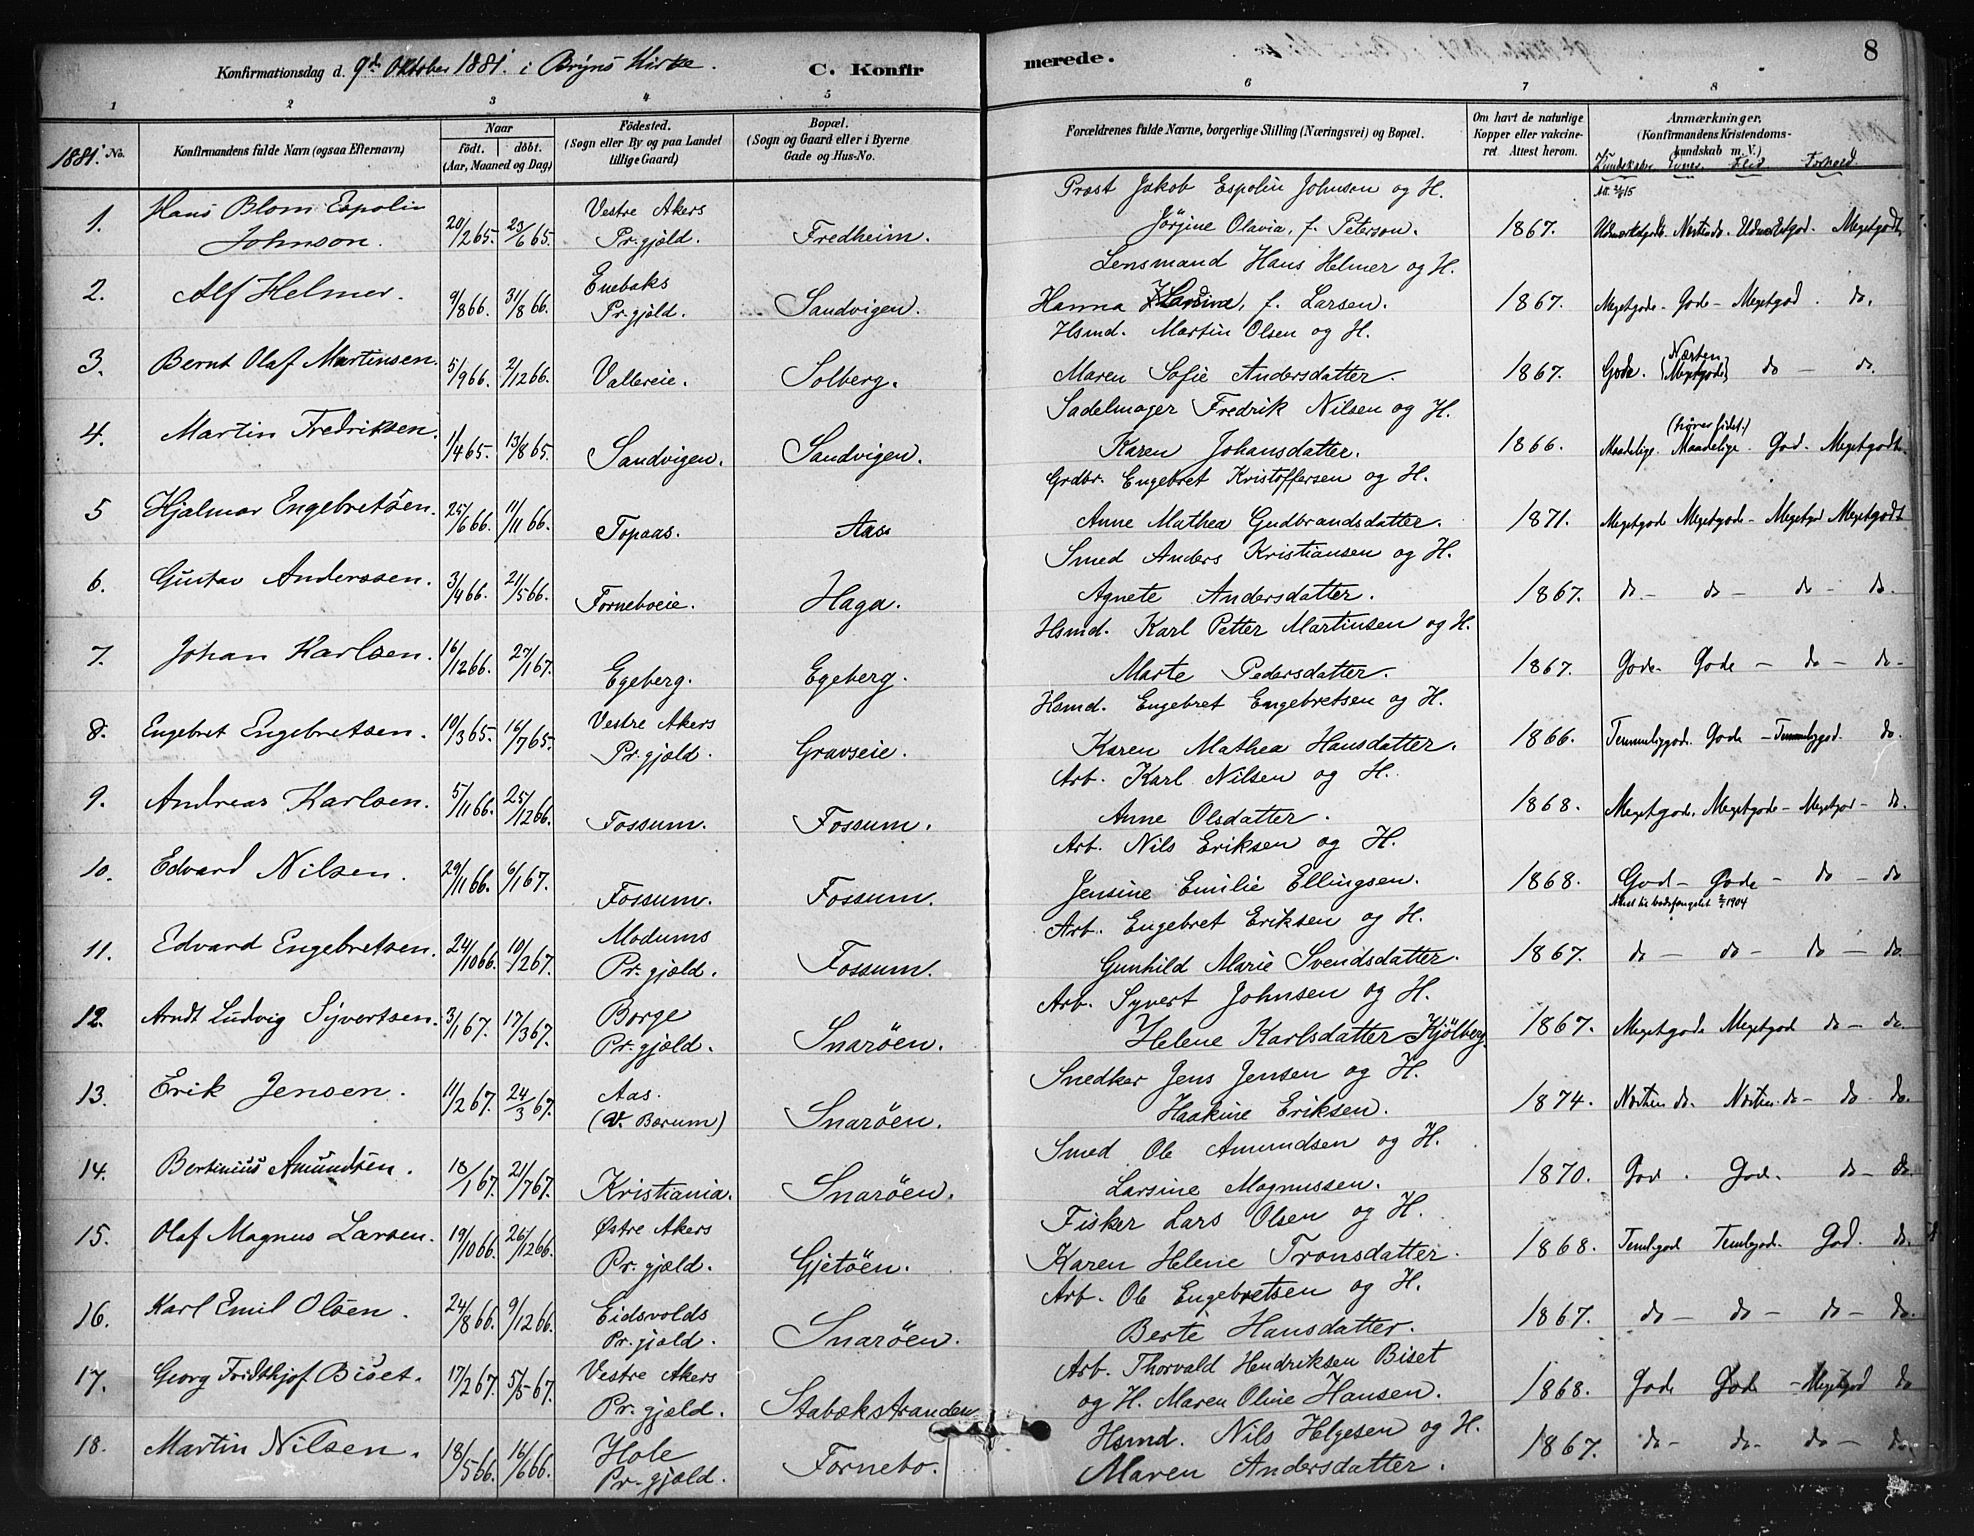 Konfirmationsdag d. 9de Oktober 1881. i Bryns Kirke. C. Konfir merede. 8
1 2 3 4 5 6 7 8
1881. No. Konfirmandens fulde Navn (ogsaa Efternavn) Naar født. døbt. (Aar, Maaned og Dag) Fødested. (Sogn eller By og paa Landet tillige Gaard) Bopæl. (Sogn og Gaard eller i Byerne Gade og Hus-No. Forældrenes fulde Navne, borgerlige Stilling (Næringsvei) og Bopæl. Om havt de naturlige Kopper eller vakcineret Attest herom. Anmærkninger. (Konfirmandens Kristendomskundskab m. V.)
Kundskaber Evner Flid Forhold
Præst Jakob Espolin Johnson og H.
1. Hans Blom Espolin Johnson. 20/2 65. 23/6 65. Vestre Akers Pr.gjæld. Fredheim. Jörgine Olavia, f. Peterson. 1867. Udmærketgode. Næsten do. Udmærketgod. Megetgodt
Lensmand Hans Helmer og H.
2. Alf Helmer. 9/8 66. 31/8 66. Enebaks Pr.gjæld. Sandvigen. Hanna f. Larsen. 1867. Megetgode - Gode - Megetgod. do.
Hsmd. Martin Olsen og H.
3. Bernt Olaf Martinsen. 5/9 66. 2/12 66. Vallereie. Solberg. Maren Sofie Andersdatter. 1867. Gode. (Næsten Megetgode) do - do.
Sadelmager Fredrik Nilsen og H.
4. Martin Fredriksen. 1/4 65. 13/8 65. Sandvigen. Sandvigen. Karen Johansdatter. 1866. Maadelige. Maadelige. God. Megetgodt.
Grdbr. Engebret Kristoffersen og H.
5 Hjalmar Engebretsen. 25/6 66. 11/11 66. Topaas. Aas. Anne Mathea Gudbrandsdatter. 1871. Megetgode Megetgode - Megetgod Megetgodt
Smed Anders Kristiansen og H.
6. Gustav Anderssen. 3/4 66. 21/5 66. Forneboeie. Haga. Agnete Andersdatter. 1867. do - do - do - do.
Hsmd. Karl Petter Martinsen og H.
7. Johan Karlsen. 16/12 66. 27/1 67. Egeberg. Egeberg. Marte Pedersdatter. 1867. Gode. Gode - do - do -
Hsmd. Engebret Engebretsen og H.
8. Engebret Engebretsen. 10/3 65. 16/7 65. Vestre Akers Pr.gjæld. Gravseie. Karen Mathea Hansdatter. 1866. Temmeliggode. Gode - Temmeliggod. do.
Arb. Karl Nilsen og H.
9. Andreas Karlsen. 5/11 66. 25/12 66. Fossum. Fossum. Anne Olsdatter. 1868. Megetgode. Megetgode - Megetgod - do.
Arb. Nils Eriksen og H.
10. Edvard Nilsen. 29/11 66. 6/1 67. Fossum. Fossum. Jensine Emilie Ellingsen. 1868. God - Gode - do - do
Arb. Engebret Eriksen og H.
11. Edvard Engebretsen. 24/10 66. 10/2 67. Modums Pr.gjæld. Fossum. Gunhild Marie Svendsdatter. 1867. do - do - do - do.
Arb. Syvert Johnsen og H.
12. Arndt Ludvig Syvertsen. 3/1 67. 17/3 67. Borge Pr.gjæld. Snarøen. Helene Karlsdatter Kjölberg. 1867. Megetgode Megetgod do - do.
Snedker Jens Jensen og H.
13. Erik Jensen. 11/2 67. 24/3 67. Aas. (V. Bærum) Snarøen. Haakine Eriksen. 1874. Næsten do. Næsten do - do - do.
Smed Ole Amundsen og H.
14. Bertinius Amundsen. 18/1 67. 21/7 67. Kristiania. Snarøen. Larsine Magnussen. 1870. God. God. do - do
Fisker Lars Olsen og H.
15. Olaf Magnus Larsen. 19/10 66. 26/12 66. Østre Akers Pr.gjæld. Gjetøen. Karen Helene Tronsdatter. 1868. Temligod Temligod. God. do.
Arb. Ole Engebretsen og H.
16. Karl Emil Olsen. 24/8 66. 9/12 66. Eidsvolds Pr.gjæld. Snarøen. Berte Hansdatter. 1867. do - do - do - do.
Arb. Thorvald Hendriksen Biset
17. Georg Fridthjof Biset. 17/2 67. 5/5 67. Vestre Akers Pr.gjæld. Stabækstranden og H. Maren Oline Hansen. 1868. Gode Gode - Megetgod do
Hsmd. Nils Helgesen og H.
18. Martin Nilsen. 18/5 66. 16/6 66. Hole Pr.gjæld. Fornebo. Maren Andersdatter. 1867. do - do. do - do.